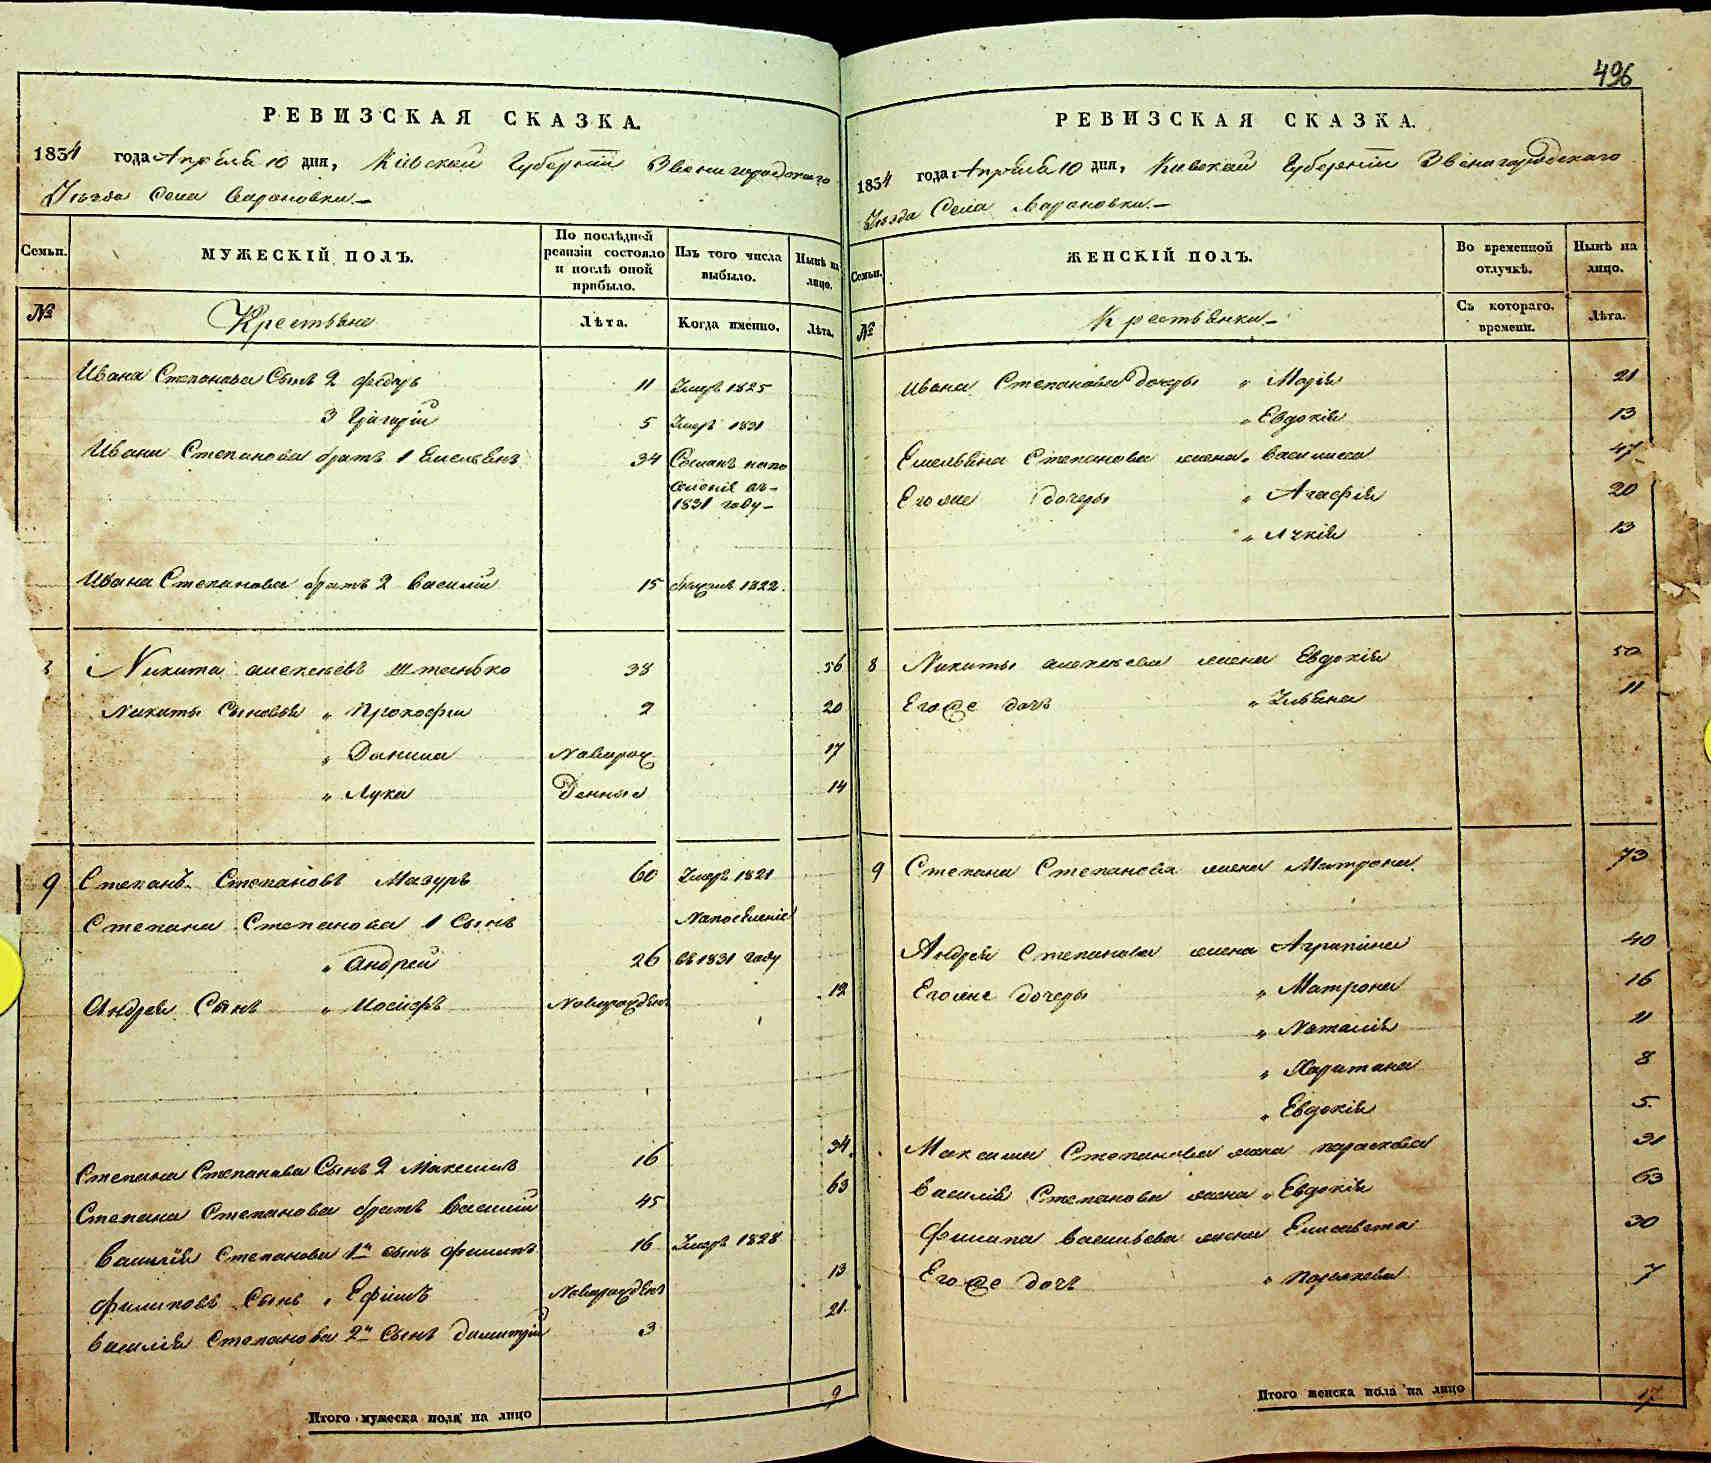 496
РЕВИЗСКАЯ СКАЗКА.
1834 года Апреля 10 дня, Кіевской Губерніи Звенигородскаго
Уезда Села
Семьи.
МУЖЕСКІЙ ПОЛЪ.
По послѣдней ревизіи состояло и послѣ оной прибыло.
Изъ того числа выбыло.
Нынѣ на лицо.
№
Крестьяне
Лѣта.
Когда именно.
Лѣта.
Ивана Степанова Сынъ 2 Федоръ 11 Умеръ 1825
3 Григорій 5 Умеръ 1831
Ивана Степанова братъ 1 Емельянъ 34 Сосланъ на по
селеніе въ
1831 году
Ивана Степанова братъ 2 Василій 15 1822.
Никита Алексеевъ Штанько 38 56
Никиты Сыновья „ Прокофій 2 20
„ Данила Новорож 17
„ Лука денные 14
9 Степанъ Степановъ Мазуръ 60 Умеръ 1821
Степана Степанова 1 Сынъ На поселеніе
„ Андрей 26 въ 1831 году
Андрея Сынъ „ Іосифъ Новорожден 12
Степана Степанова Сынъ 2 Максимъ 16 34
Степана Степанова братъ Василій 45 63
Василія Степанова 1й сынъ Филипъ 16 Умеръ 1828
Филиповъ Сынъ „ Ефимъ Новорожден 13
Василія Степанова 2й Сынъ Димитрій 3 21
Итого мужеска пола на лицо 9
РЕВИЗСКАЯ СКАЗКА.
1834 года Апреля 10 дня, Кіевской Губерніи Звенигородскаго
Уезда Села
Семьи.
ЖЕНСКІЙ ПОЛЪ.
Во временной отлучкѣ.
Нынѣ на лицо.
№
Крестьянки
Съ котораго времени.
Лѣта.
Ивана Степанова дочеры „ Марія 21
„ Евдокія 13
Емельяна Степанова жена „ Василиса 47
Его же дочеры „ Агафія 20
„ 13
8 Никиты Алексеева жена Евдокія 50
Его же дочь „ Ульяна 11
9 Степана Степанова жена Матрона 73
Андрея Степанова жена Агрипина 40
Его же дочеры „ Матрона 16
„ Наталія 11
„ Харитина 8
„ Евдокія 5
Максима Степанова жена Параскева 31
Василія Степанова жена „ Евдокія 63
Филипа Васильева жена Елисавета 30
Его же дочь „ Параскева 7
Итого женска пола на лицо 17